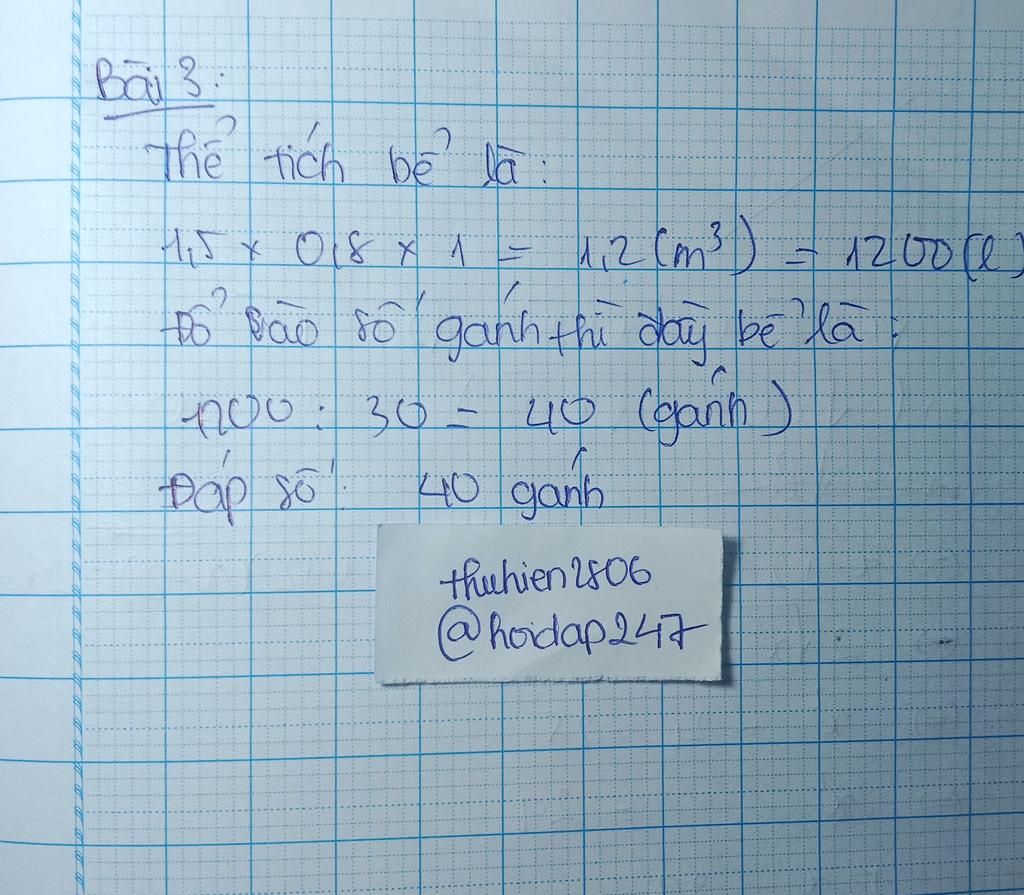 Bài 3:
Thể tích bể là:
1,5 × 0,8 × 1 = 1,2 (m³) = 1200 (l)
Đổ vào số gánh thì đầy bể là:
1200 : 30 = 40 (gánh)
Đáp số: 40 gánh
thuhien2806
@hoidap247